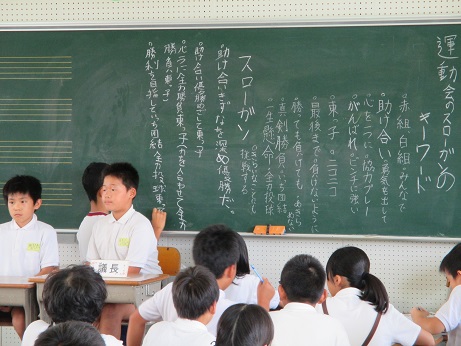 運動会のスローガンの
キーワード
赤組、白組みんなで
助け合い
勇気を出して
心を一つに
協力プレー
がんばれ
ピンチに強い
東っ子
ニコニコ
最後まで
負けないように
勝っても負けても
あきらめない
真剣勝負
いち団結
一生懸命
全力投球
スローガン
挑戦する
助け合いきずなを深め優勝だ。
助け合い優勝目ざして東っ子
心一つに全力勝負東っ子
力を合わせて全力
勝負だ東っ子
勝利を目指していち団結全力投球東っ
議長